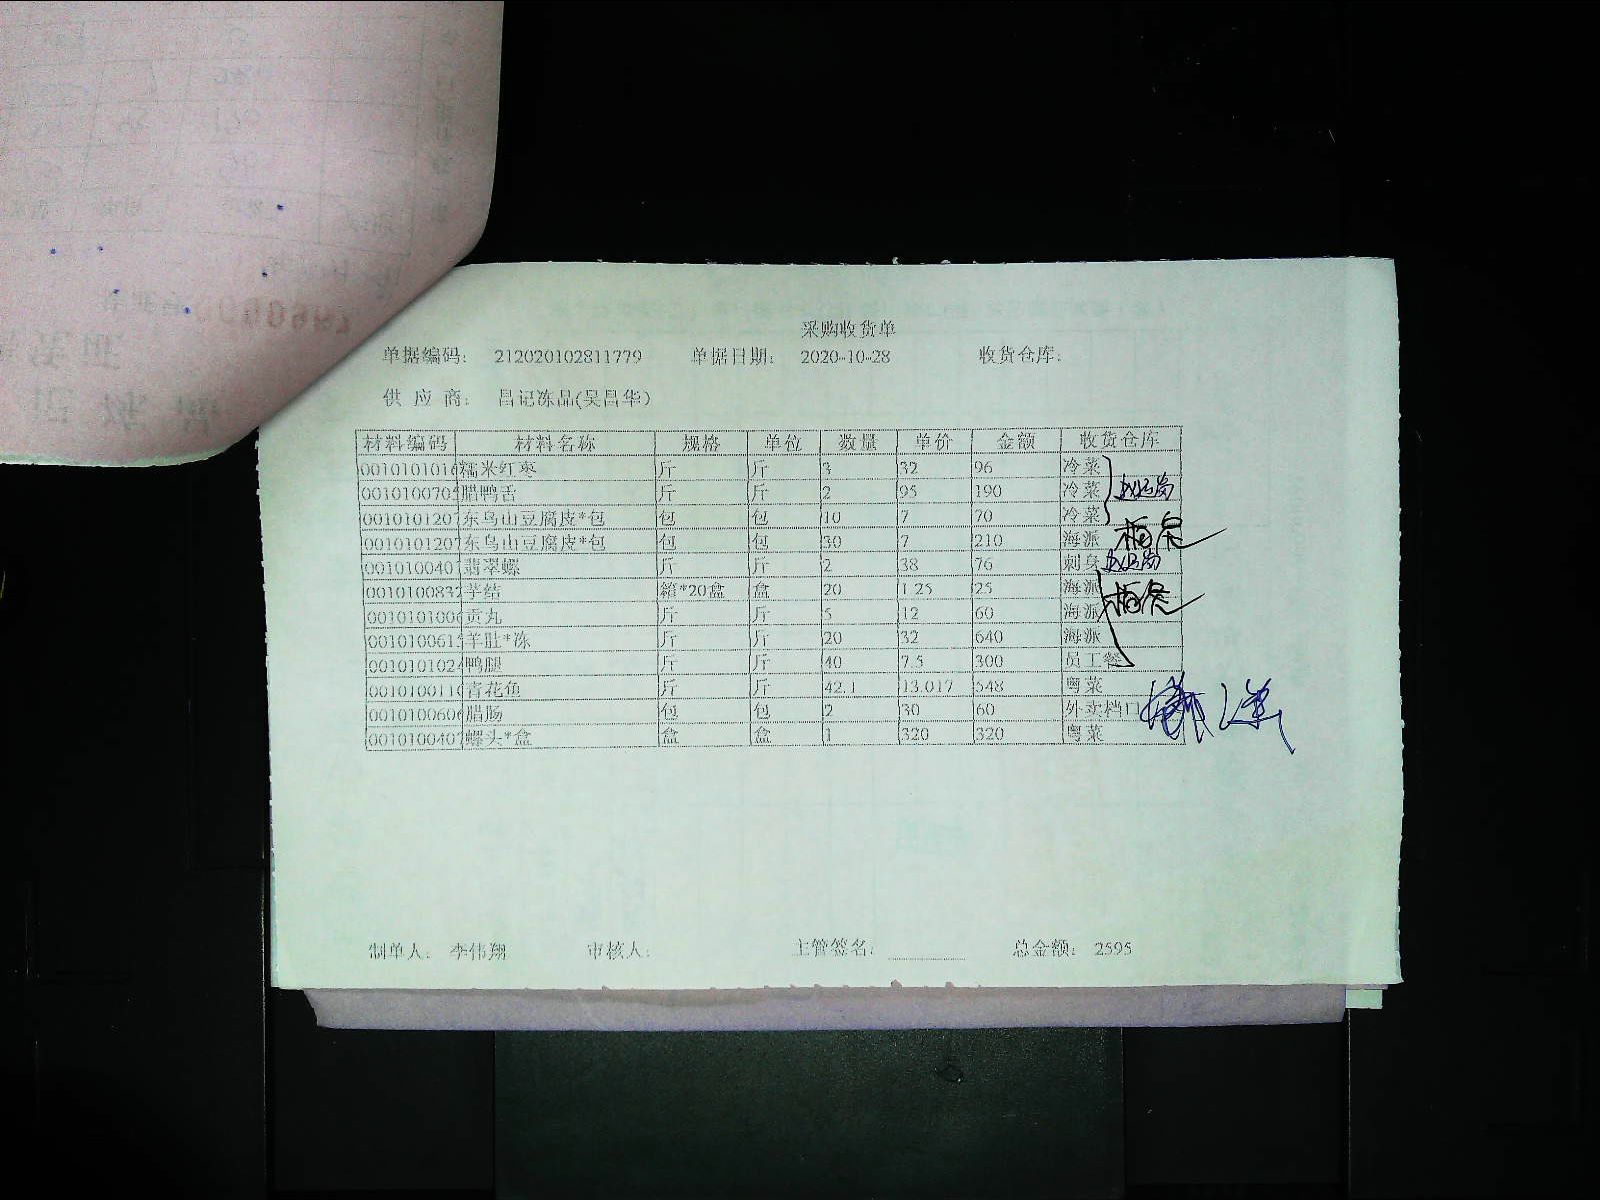 采购收货单
单据编码: 212020102811779 单据日期: 2020-10-28 收货仓库:
供 应 商: 昌记冻品(吴昌华)
材料编码 材料名称 规格 单位 数量 单价 金额 收货仓库
0010101016 糯米红枣 斤 斤 3 32 96 冷菜
001010070 腊鸭舌 斤 斤 2 95 190 冷菜
0010101207 东乌山豆腐皮*包 包 包 10 7 70 冷菜
0010101207 东乌山豆腐皮*包 包 包 30 7 210 海派
001010040 翡翠螺 斤 斤 2 38 76 刺身
001010083 芋结 箱*20盒 盒 20 1.25 25 海派
001010100 贡丸 斤 斤 5 12 60 海派
001010061 羊肚*冻 斤 斤 20 32 640 海派
001010102 鸭腿 斤 斤 40 7.5 300 员工餐
001010011 青花鱼 斤 斤 42.1 13.017 548 粤菜
001010060 腊肠 包 包 2 30 60 外卖档口
001010040 螺头*盒 盒 盒 1 320 320 粤菜
制单人: 李伟翔 审核人: 主管签名: 总金额: 2595